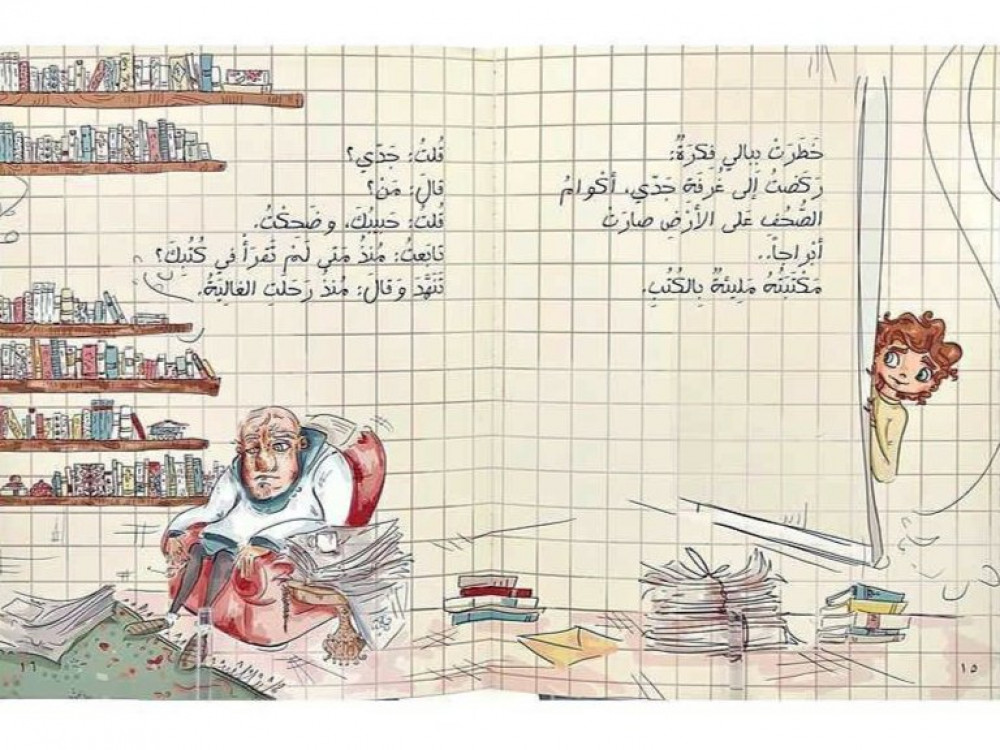 خَطَرَتْ بِبالي فِكرَةٌ:
رَكَضتُ إلى غُرفَةِ جَدّي، أكْوامُ
الصُّحُفِ عَلى الأرْضِ صارَتْ
أبْراجاً..
مَكْتَبَتُهُ مَليئةٌ بِالكُتُبِ.
١٥
قُلتُ: جَدّي؟
قالَ: مَنْ؟
قُلتُ: حَبيبُكَ، وضَحِكْتُ.
تابَعتُ: مُنذُ مَتى لَمْ تَقرَأْ في كُتُبِكَ؟
تَنَهَّدَ وَقالَ: مُنذُ رَحَلَتِ الغالِيَةُ.
١٦